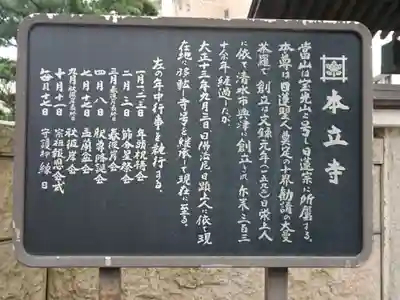 本立寺
当山は宝光山と号し日蓮宗に所属する。
本尊は日蓮聖人奠定の十界勧請の大曼
荼羅で創立は文禄元年(一五九二)日栄上人
に依て清水市興津に創立され、年来三百三
十余年経過したが
大正十三年九月三日日佛治尼日顕上人に依て現
在地に移転し寺号を継承して現在に至る。
左の年中行事を執行する。
一月一二三日 年頭祝祷会
二月三日 節分星祭会
三月春彼岸お中日 春彼岸会
四月八日 釈尊降誕会
七月十七日 盂蘭盆会
九月秋彼岸お中日 秋彼岸会
十月十一日 宗祖報恩会式
毎月十七日 守護神縁日